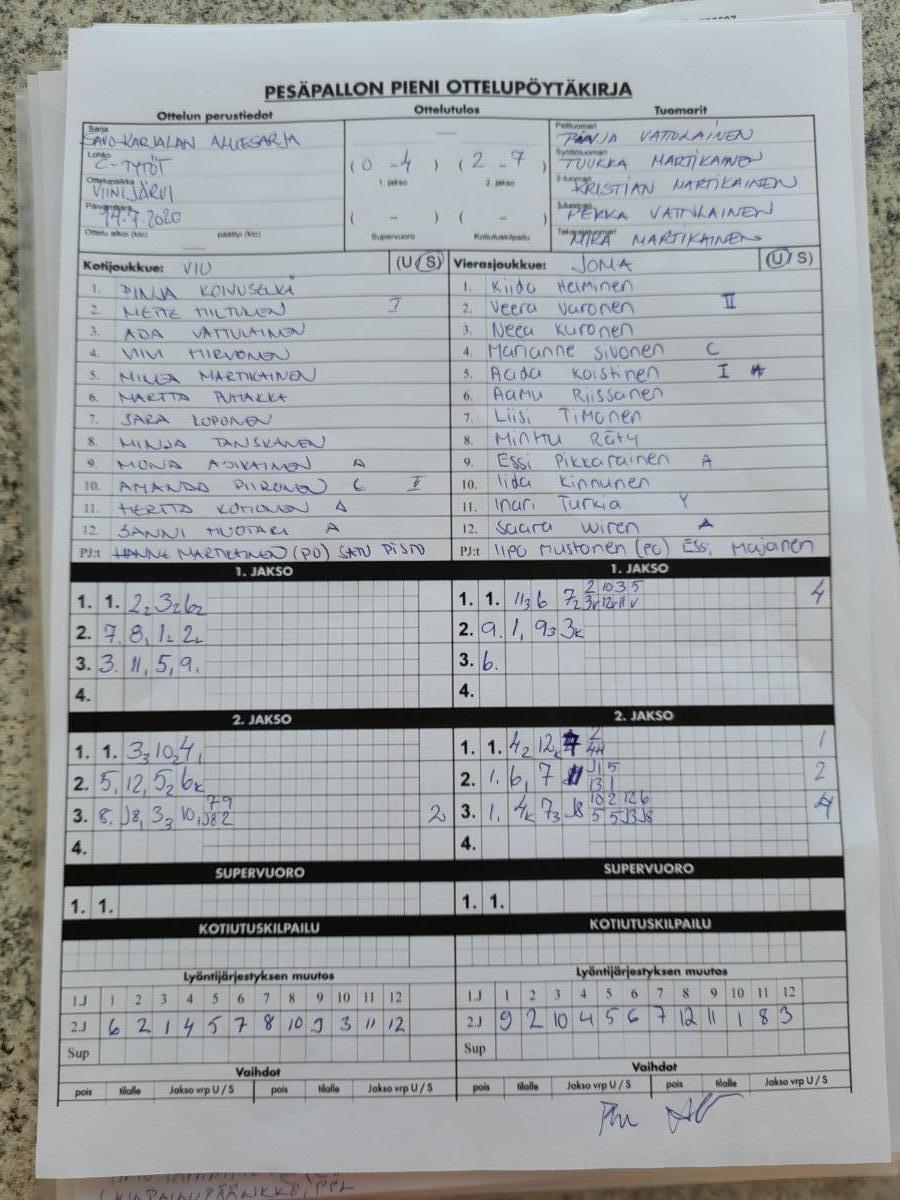 PESÄPALLON PIENI OTTELUPÖYTÄKIRJA
Ottelun perustiedot Ottelutulos Tuomarit
Sarja
SAVO-KARJALAN ALUESARJA
Lohko
C-TYTÖT
Ottelupaikka
VIINIJÄRVI
Päivämäärä
14.7.2020
Ottelu alkoi (klo) päättyi (klo)
( 0 - 4 ) ( 2 - 7 )
1. jakso 2. jakso
( - ) ( - )
Supervuoro Kotiutuskilpailu
Pelituomari
VATTULAINEN
Syöttötuomari
TUUKKA MARTIKAINEN
2-tuomari
KRISTIAN MARTIKAINEN
3-tuomari
PEKKA VATTULAINEN
Takarajatuomari
MIRA MARTIKAINEN
Kotijoukkue: VIU (U/S)
1. PINJA KOIVUSELKÄ
2. METTE HILTUNEN I
3. ADA VATTULAINEN
4. VIIVI HIRVONEN
5. MILLA MARTIKAINEN
6. MARTTA PUHAKKA
7. SARA KOPONEN
8. MINJA TANSKANEN
9. MONA ASIKAINEN A
10. AMANDA PIIRONEN C II
11. HERTTA KOHONEN A
12. SANNI HUOTARI A
PJ:t HANNE MARTIKAINEN (PJ) SATU PISTO
Vierasjoukkue: JOMA (U/S)
1. Kiida Heiminen
2. Veera Varonen II
3. Neea Kuronen
4. Marianne Sivonen C
5. Aada Koistinen I
6. Aamu Riissanen
7. Liisi Timonen
8. Minttu Räty
9. Essi Pikkarainen A
10. Iida Kinnunen
11. Inari Turkia Y
12. Saara Wiren A
PJ:t Iipo Mustonen (PJ) Essi Majanen
1. JAKSO 1. JAKSO
1. 1. 2₂ 3₂ 6₂
2. 7. 8, 1₂ 2₂
3. 3. 11, 5, 9.
4.
1. 1. 11₃ 6 7₂ 2 10 3 5 4
2. 9. 1, 9₃ 3k
3. 6.
4.
2. JAKSO 2. JAKSO
1. 1. 3₃ 10₂ 4,
2. 5, 12, 5₂ 6k
3. 8. J8, 3₃ 10, 7 9 J8 2 2
4.
1. 1. 4₂ 12k 1
2. 1. 6, 7 J1 5 13 1 2
3. 1. 4k 7₃ J8 10 2 12 6 5 5 J3 J8 4
4.
SUPERVUORO SUPERVUORO
1. 1. 1. 1.
KOTIUTUSKILPAILU KOTIUTUSKILPAILU
Lyöntijärjestyksen muutos Lyöntijärjestyksen muutos
1.J 1 2 3 4 5 6 7 8 9 10 11 12
2.J 6 2 1 4 5 7 8 10 9 3 11 12
Sup
1.J 1 2 3 4 5 6 7 8 9 10 11 12
2.J 9 2 10 4 5 6 7 12 11 1 8 3
Sup
Vaihdot Vaihdot
pois tilalle Jakso vrp U / S pois tilalle Jakso vrp U / S
pois tilalle Jakso vrp U / S pois tilalle Jakso vrp U / S